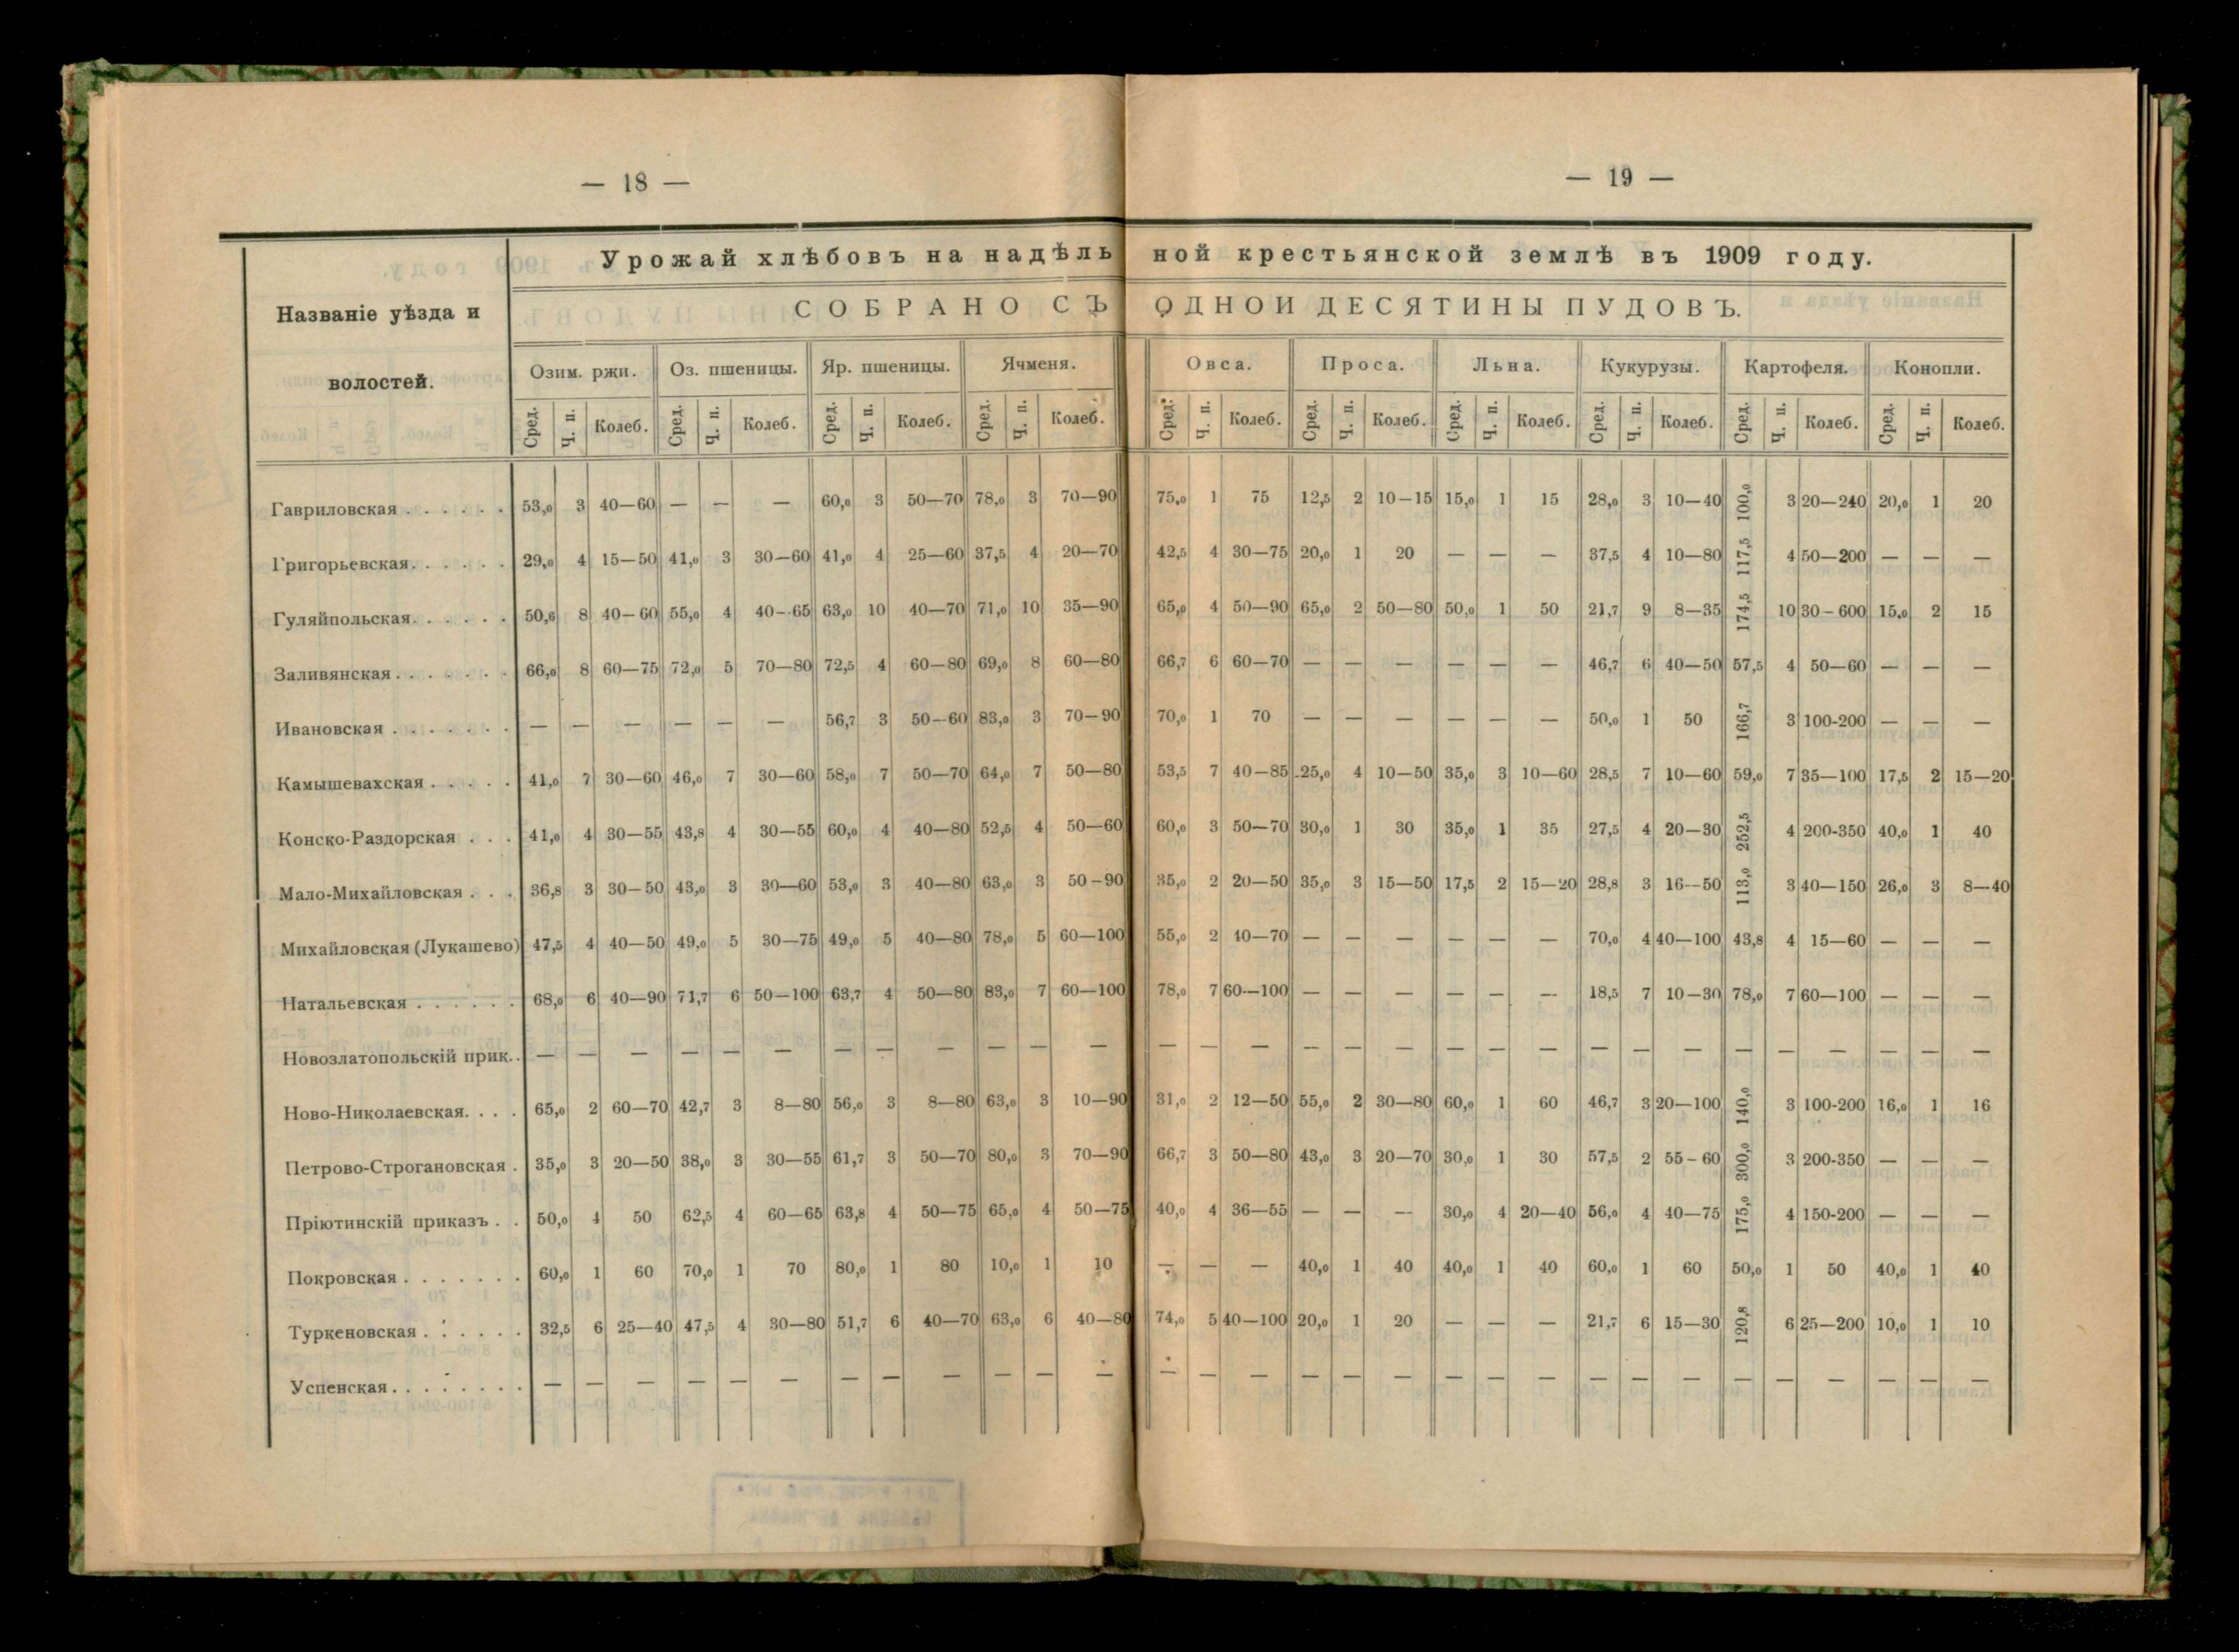 — 18 —
— 19 —
Урожай хлѣбовъ на надѣль ной крестьянской землѣ въ 1909 году.
Названіе уѣзда и
волостей.
СОБРАНО СЪ ОДНОЙ ДЕСЯТИНЫ ПУДОВЪ.
Озим. ржи. Оз. пшеницы. Яр. пшеницы. Ячменя. Овса. Проса. Льна. Кукурузы. Картофеля. Конопли.
Сред. Ч. п. Колеб. Сред. Ч. п. Колеб. Сред. Ч. п. Колеб. Сред. Ч. п. Колеб. Сред. Ч. п. Колеб. Сред. Ч. п. Колеб. Сред. Ч. п. Колеб. Сред. Ч. п. Колеб. Сред. Ч. п. Колеб. Сред. Ч. п. Колеб.
Гавриловская . . . . . . 53,0 3 40—60 — — — 60,0 3 50—70 78,0 3 70—90 75,0 1 75 12,5 2 10—15 15,0 1 15 28,0 3 10—40 100,0 3 20—240 20,0 1 20
Григорьевская. . . . . . 29,0 4 15—50 41,0 3 30—60 41,0 4 25—60 37,5 4 20—70 42,5 4 30—75 20,0 1 20 — — — 37,5 4 10—80 117,5 4 50—200 — — —
Гуляйпольская. . . . . . 50,6 8 40—60 55,0 4 40—65 63,0 10 40—70 71,0 10 35—90 65,0 4 50—90 65,0 2 50—80 50,0 1 50 21,7 9 8—35 174,5 10 30—600 15,0 2 15
Заливянская . . . . . . . 66,0 8 60—75 72,0 5 70—80 72,5 4 60—80 69,0 8 60—80 66,7 6 60—70 — — — — — — 46,7 6 40—50 57,5 4 50—60 — — —
Ивановская . . . . . . . — — — — — — 56,7 3 50—60 83,0 3 70—90 70,0 1 70 — — — — — — 50,0 1 50 166,7 3 100-200 — — —
Камышевахская . . . . . 41,0 7 30—60 46,0 7 30—60 58,0 7 50—70 64,0 7 50—80 53,5 7 40—85 25,0 4 10—50 35,0 3 10—60 28,5 7 10—60 59,0 7 35—100 17,5 2 15—20
Конско-Раздорская . . . 41,0 4 30—55 43,8 4 30—55 60,0 4 40—80 52,5 4 50—60 60,0 3 50—70 30,0 1 30 35,0 1 35 27,5 4 20—30 252,5 4 200-350 40,0 1 40
Мало-Михайловская . . . 36,8 3 30—50 43,0 3 30—60 53,0 3 40—80 63,0 3 50—90 35,0 2 20—50 35,0 3 15—50 17,5 2 15—20 28,8 3 16—50 113,0 3 40—150 26,0 3 8—40
Михайловская (Лукашево) 47,5 4 40—50 49,0 5 30—75 49,0 5 40—80 78,0 5 60—100 55,0 2 40—70 — — — — — — 70,0 4 40—100 43,8 4 15—60 — — —
Натальевская . . . . . . 68,0 6 40—90 71,7 6 50—100 63,7 4 50—80 83,0 7 60—100 78,0 7 60—100 — — — — — — 18,5 7 10—30 78,0 7 60—100 — — —
Новозлатопольскій прик. . — — — — — — — — — — — — — — — — — — — — — — — — — — — — — —
Ново-Николаевская. . . . 65,0 2 60—70 42,7 3 8—80 56,0 3 8—80 63,0 3 10—90 31,0 2 12—50 55,0 2 30—80 60,0 1 60 46,7 3 20—100 140,0 3 100-200 16,0 1 16
Петрово-Строгановская . 35,0 3 20—50 38,0 3 30—55 61,7 3 50—70 80,0 3 70—90 66,7 3 50—80 43,0 3 20—70 30,0 1 30 57,5 2 55—60 300,0 3 200-350 — — —
Пріютинскій приказъ . . 50,0 4 50 62,5 4 60—65 63,8 4 50—75 65,0 4 50—75 40,0 4 36—55 — — — 30,0 4 20—40 56,0 4 40—75 175,0 4 150-200 — — —
Покровская . . . . . . . 60,0 1 60 70,0 1 70 80,0 1 80 10,0 1 10 — — — 40,0 1 40 40,0 1 40 60,0 1 60 50,0 1 50 40,0 1 40
Туркеновская . . . . . . 32,5 6 25—40 47,5 4 30—80 51,7 6 40—70 63,0 6 40—80 74,0 5 40—100 20,0 1 20 — — — 21,7 6 15—30 120,8 6 25—200 10,0 1 10
Успенская . . . . . . . . — — — — — — — — — — — — — — — — — — — — — — — — — — — — — —